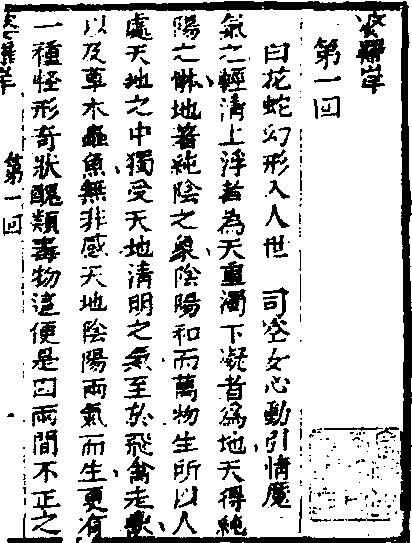 第一回
白花蛇幻形入人世 司空女心動引情魔
氣之輕清上浮者為天重濁下凝者為地天得純
陽之 地著純陰之象陰陽和而萬物生所以人
處天地之中獨受天地清明之氣至於飛禽走獸
以及草木蟲魚無非感天地陰陽兩氣而生更有
一種怪形奇狀醜類毒物這便是因兩間不正之
第一回